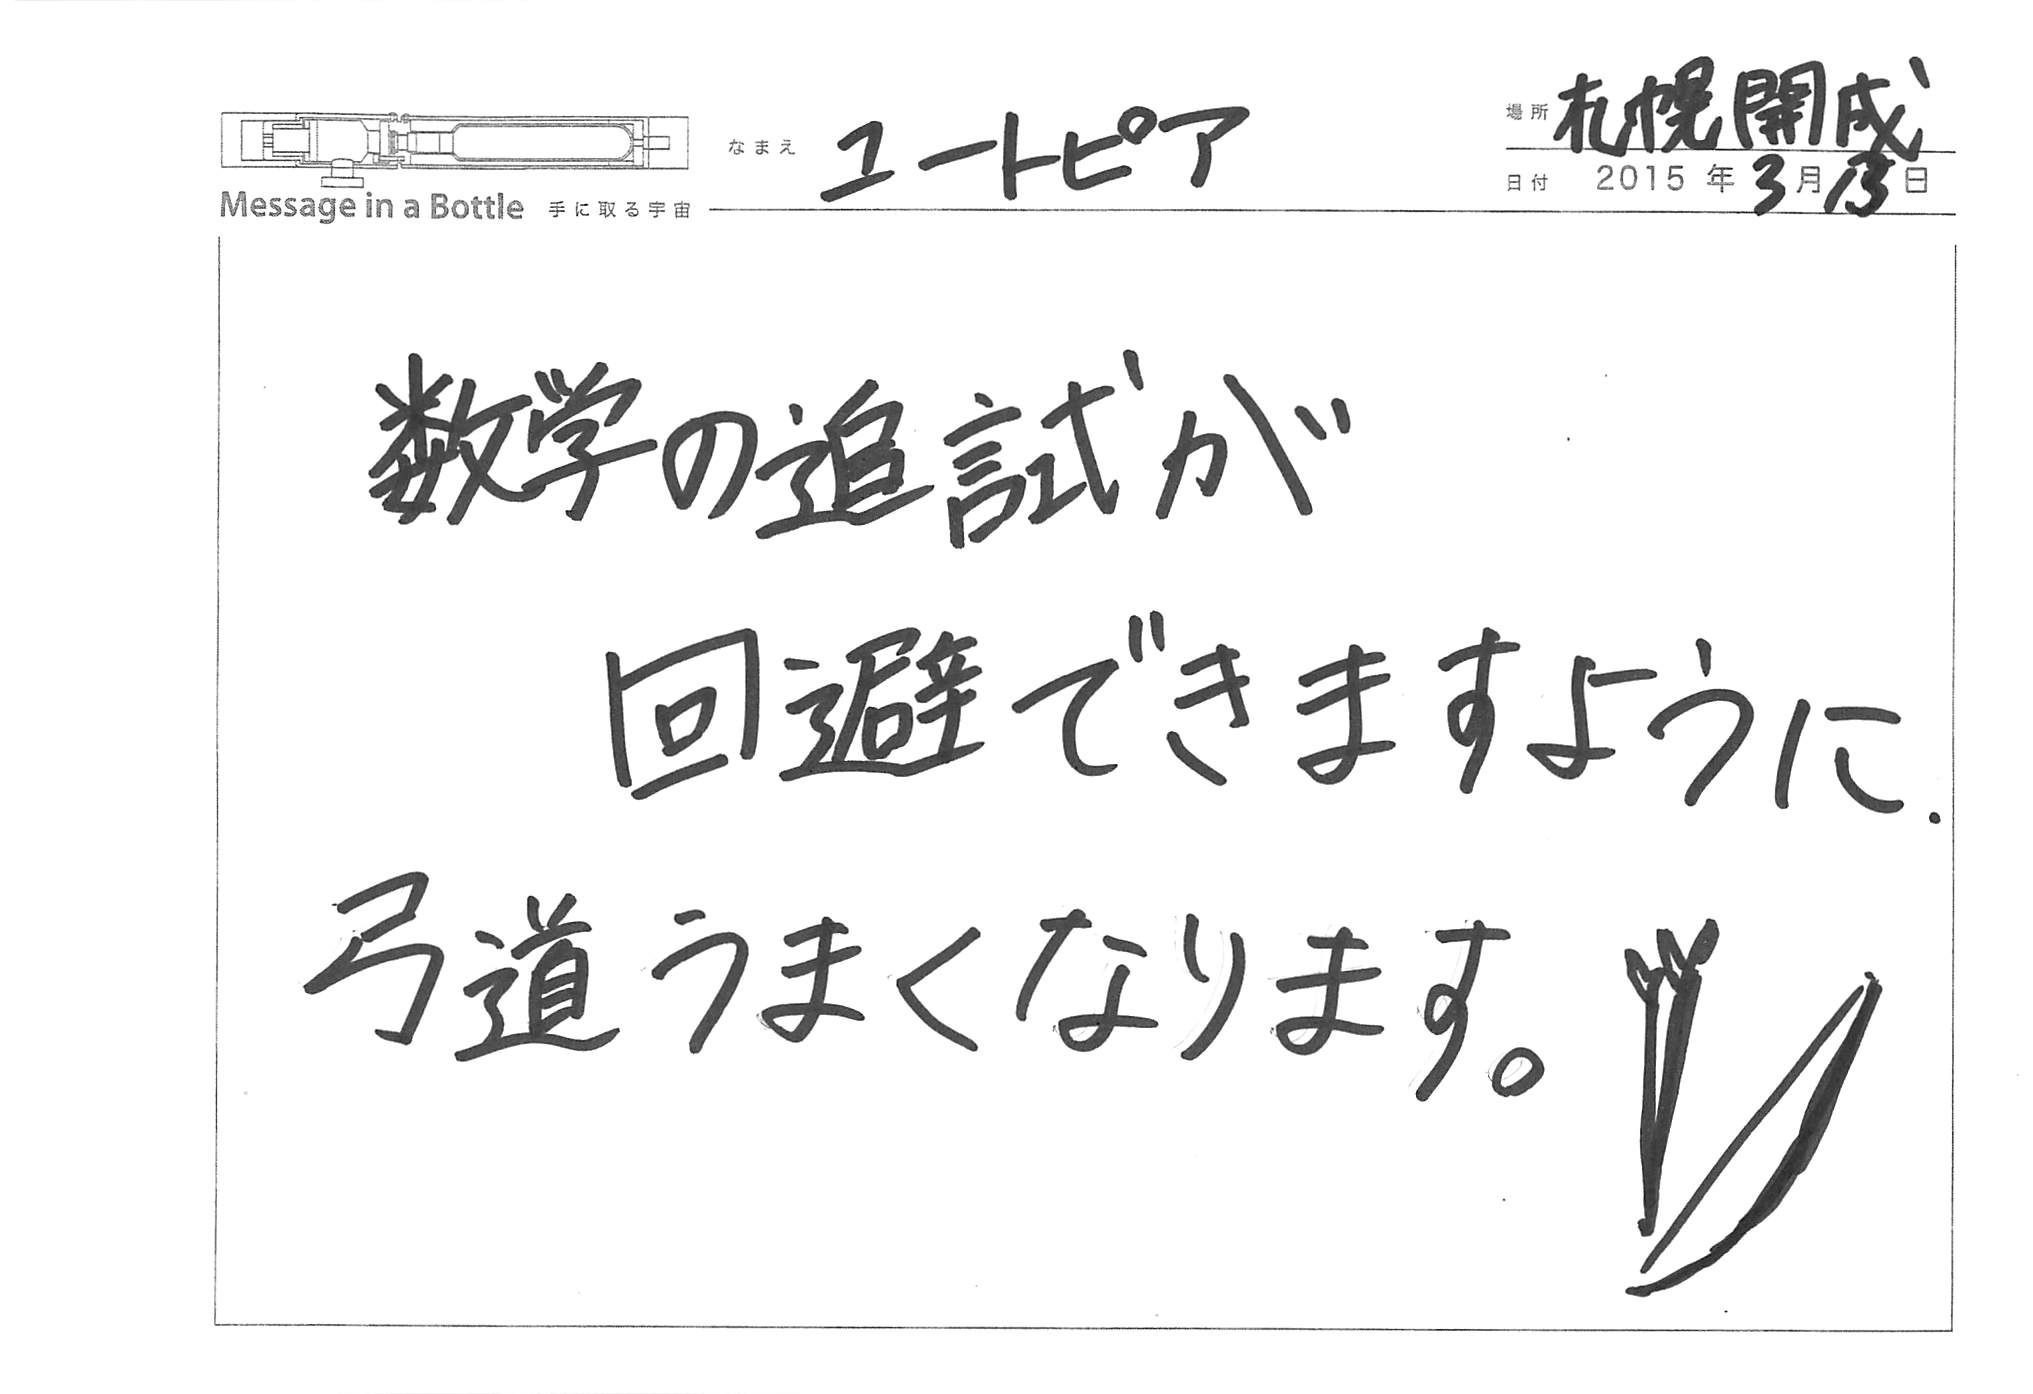 場所 札幌開成
なまえ ユートピア
日付 2015年3月13日
Message in a Bottle 手に取る宇宙
数学の追試が
回避できますように.
弓道うまくなります。